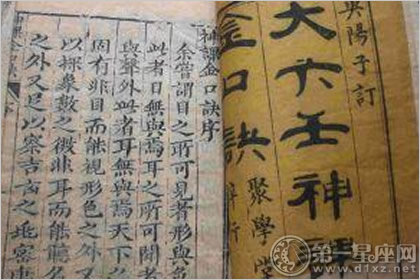 陽子訂
大六壬神課
金口訣
聚學堂
神課金口訣序
余嘗謂目之所可見者形與
此者目無與焉耳之所可聞
與聲外此者耳無與焉天下
固有非目而能視形色之外
以探象數之微非耳而能聽
之外又足以察吉凶之
第一星座网
www.d1xz.net